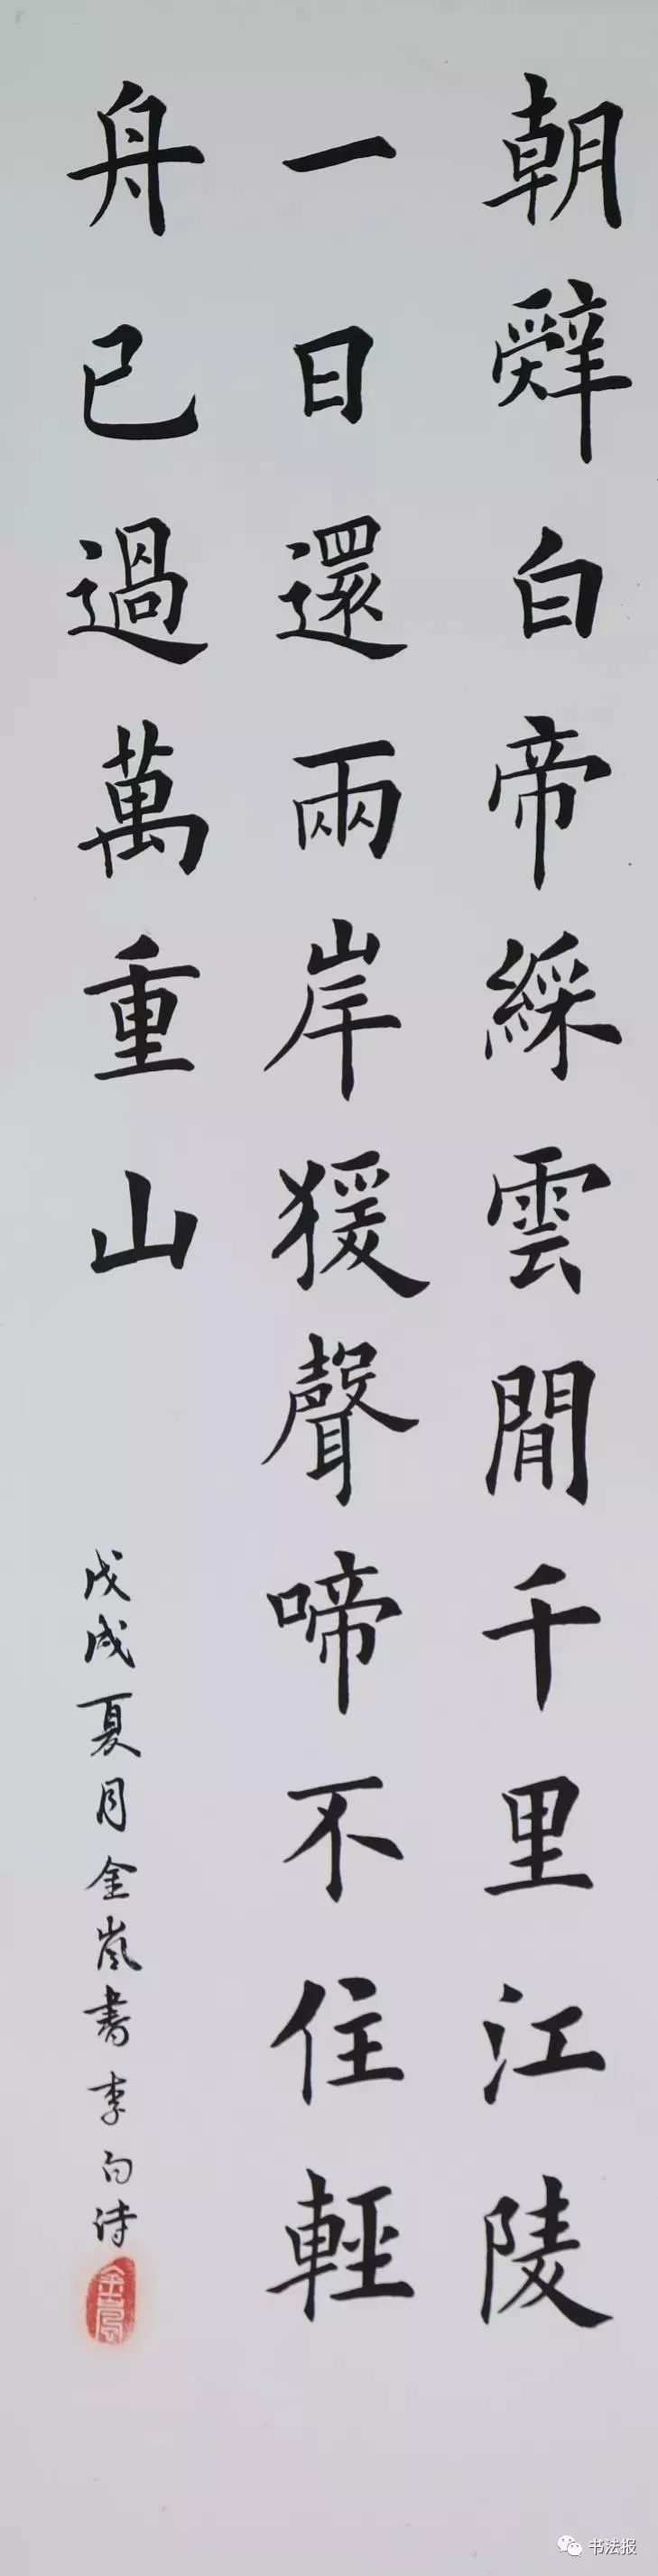 朝辤白帝綵雲間千里江陵
一日還兩岸猨聲啼不住輕
舟已過萬重山
戊戌夏月金嵐書李白詩
金嵐
书法报